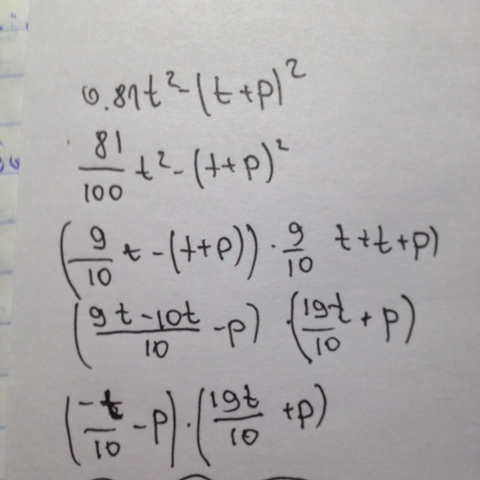 0.81t² - (t+p)²
81/100 t² - (t+p)²
(9/10 t - (t+p)) · 9/10 t+t+p)
((9t-10t)/10 - p) · (19t/10 + p)
(-t/10 - p) · (19t/10 + p)